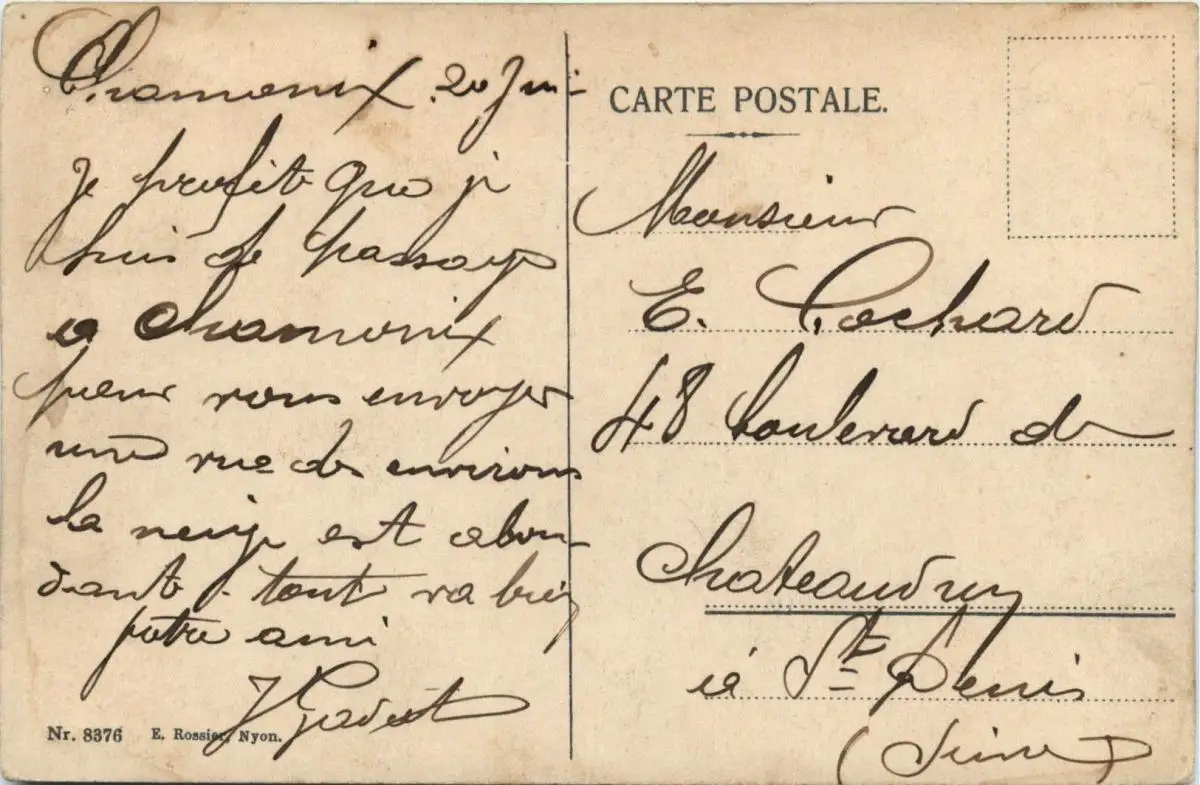 Chamonix 20 Juin
Je profite que je
suis de passage
a Chamonix
pour vous envoyer
une vue des environs
la neige est abon-
dante. tout va bien
votre ami
Nr. 8376 E. Rossier, Nyon.
CARTE POSTALE.
Monsieur
E. Cochard
48 boulevard de
Chateaudun
à St Denis
(Seine)